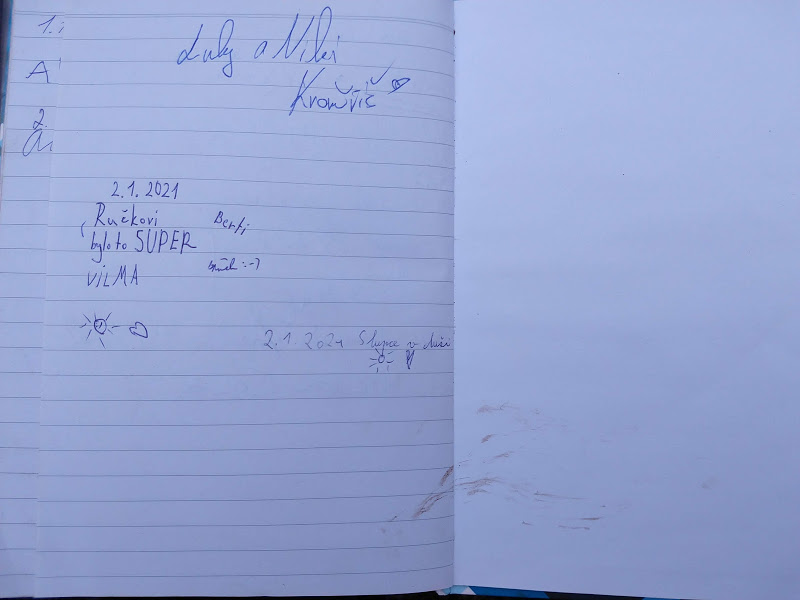 1.
A
2.
Luky a Niki
2.1.2021
Ručkovi
bylo to SUPER
VILMA
2.1.2021 Slunce v duši